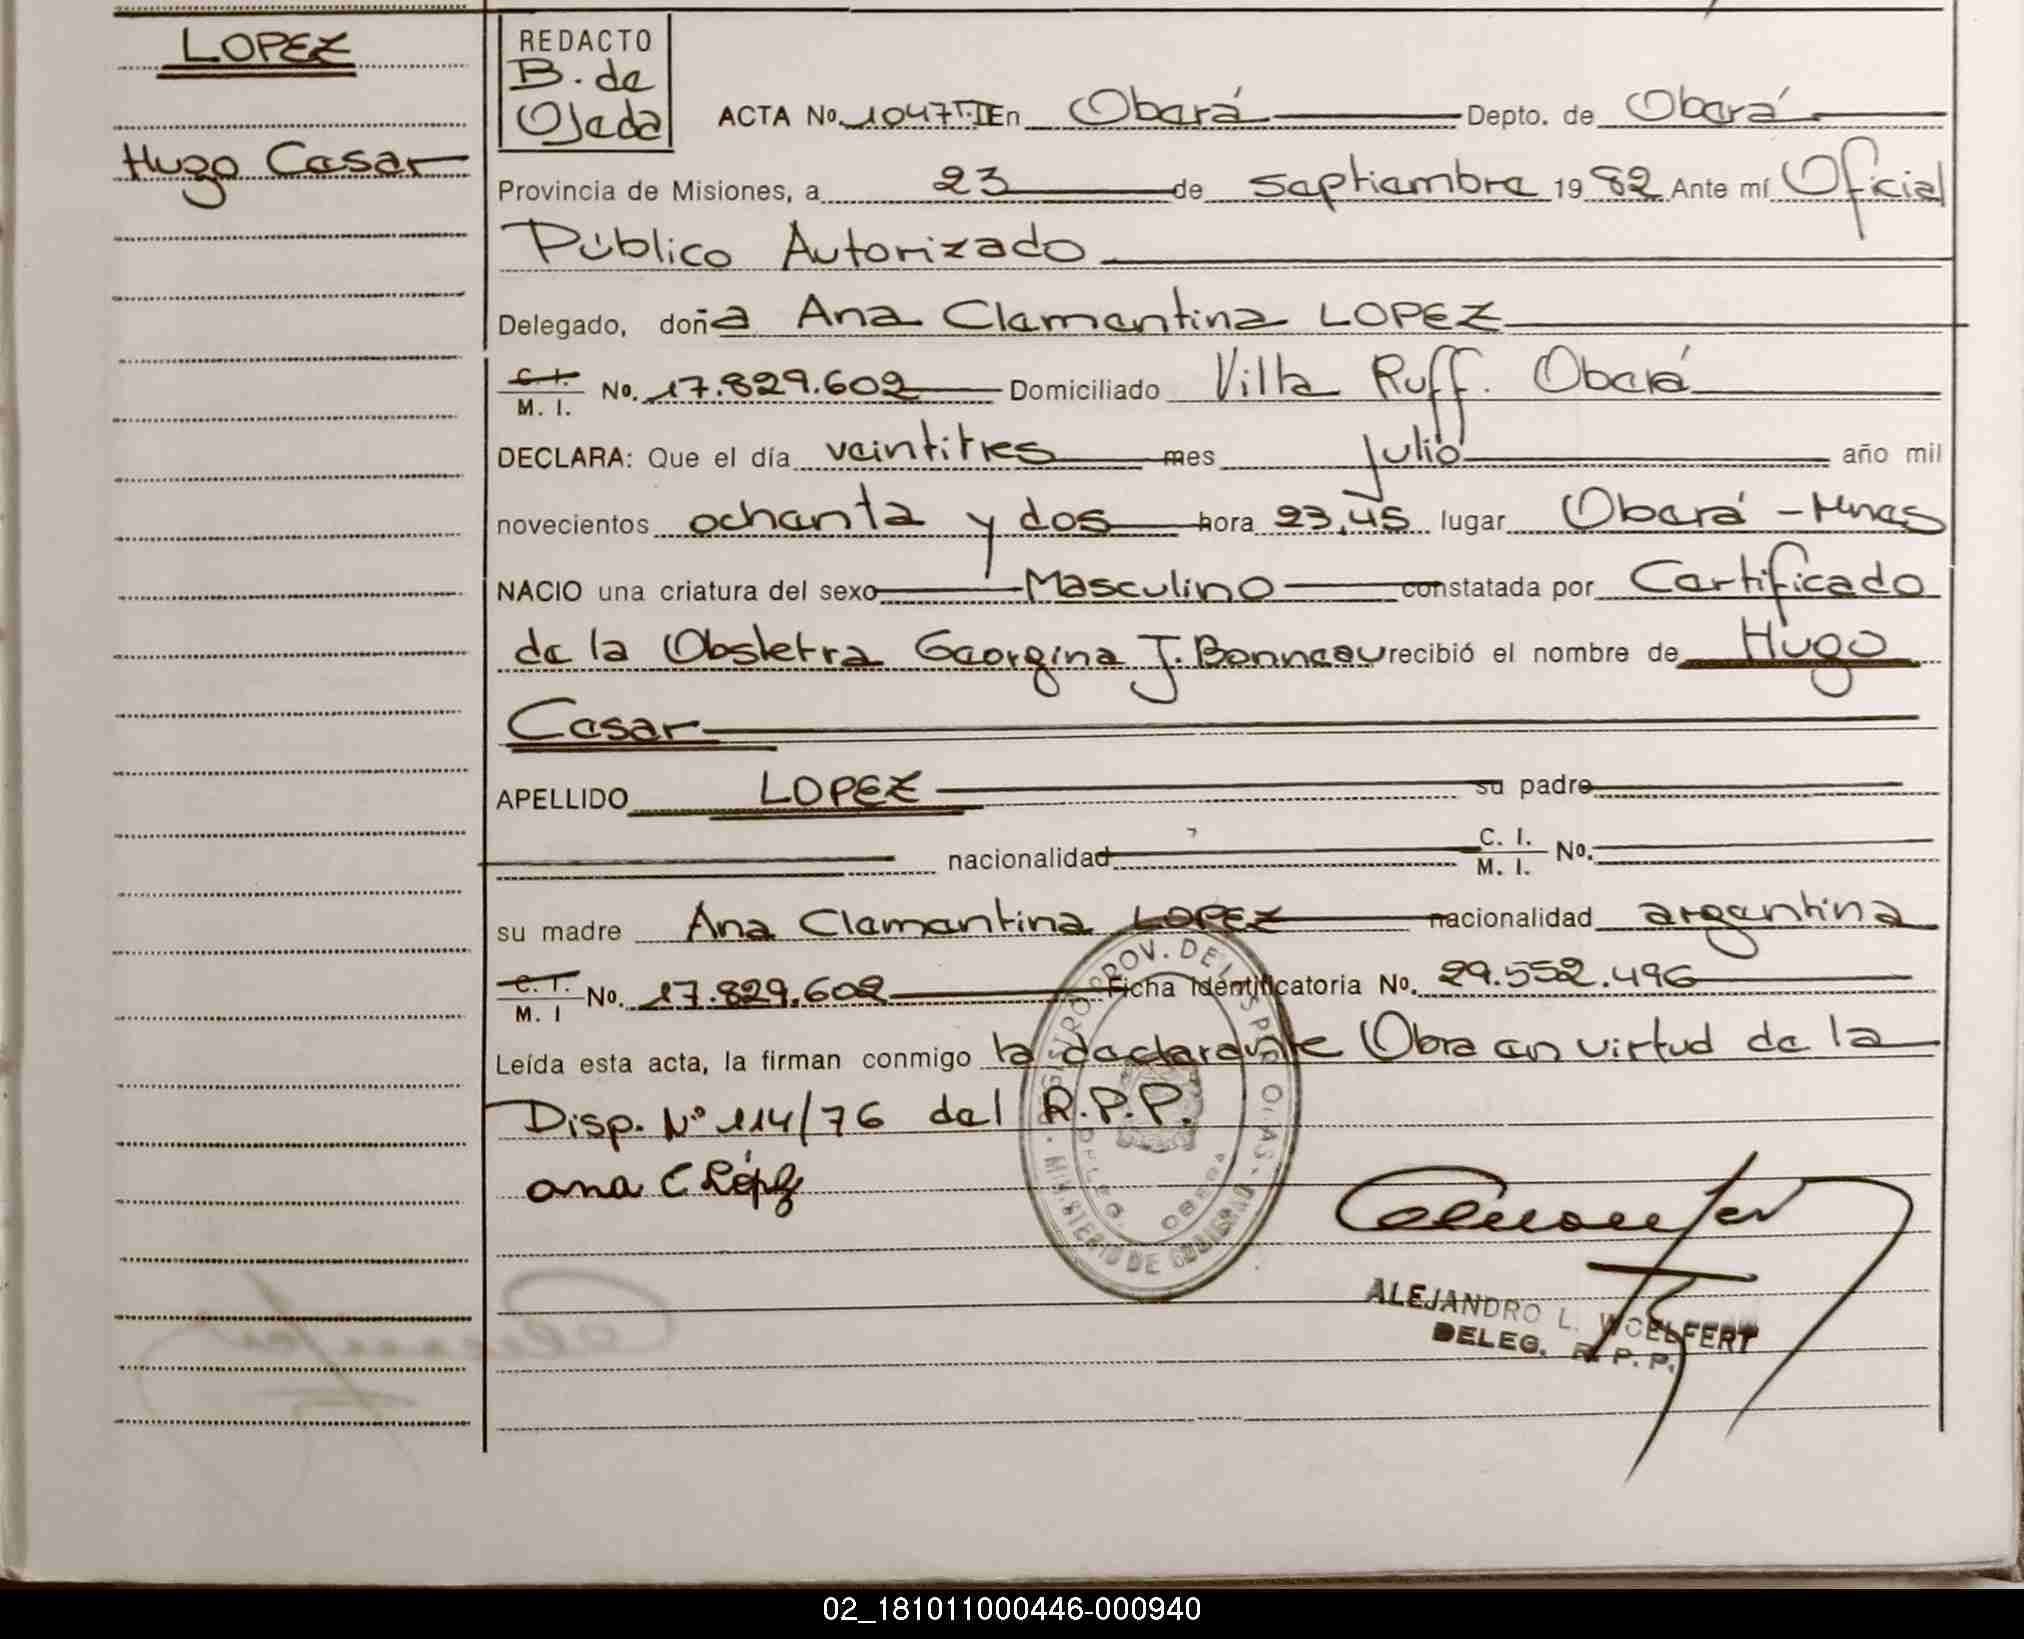 LOPEZ
Hugo Cesar
REDACTO
B. de
Ojeda
ACTA No. 1047 T-II En Oberá Depto. de Oberá
Provincia de Misiones, a 23 de septiembre 1982 Ante mí Oficial
Público Autorizado
Delegado, doña Ana Clementina LOPEZ
C. I. / M. I. No. 17.829.602 Domiciliado Villa Ruff. Oberá
DECLARA: Que el día veintitres mes julio año mil
novecientos ochenta y dos hora 23,45 lugar Oberá - Mnes
NACIO una criatura del sexo Masculino constatada por Certificado
de la Obstetra Georgina J. Bonneau recibió el nombre de Hugo
Cesar
APELLIDO LOPEZ su padre
nacionalidad C. I. / M. I. No.
su madre Ana Clementina LOPEZ nacionalidad argentina
C. I. / M. I No. 17.829.602 Ficha Identificatoria No. 29.552.496
Leída esta acta, la firman conmigo la declarante Obra en virtud de la
Disp. Nº 114/76 del R.P.P.
ana C López
REGISTRO PROV. DE LAS PERSONAS
MINISTERIO DE GOBIERNO
DELEG. OBERA
ALEJANDRO L. WOELFERT
DELEG. R. P. P.
02_181011000446-000940